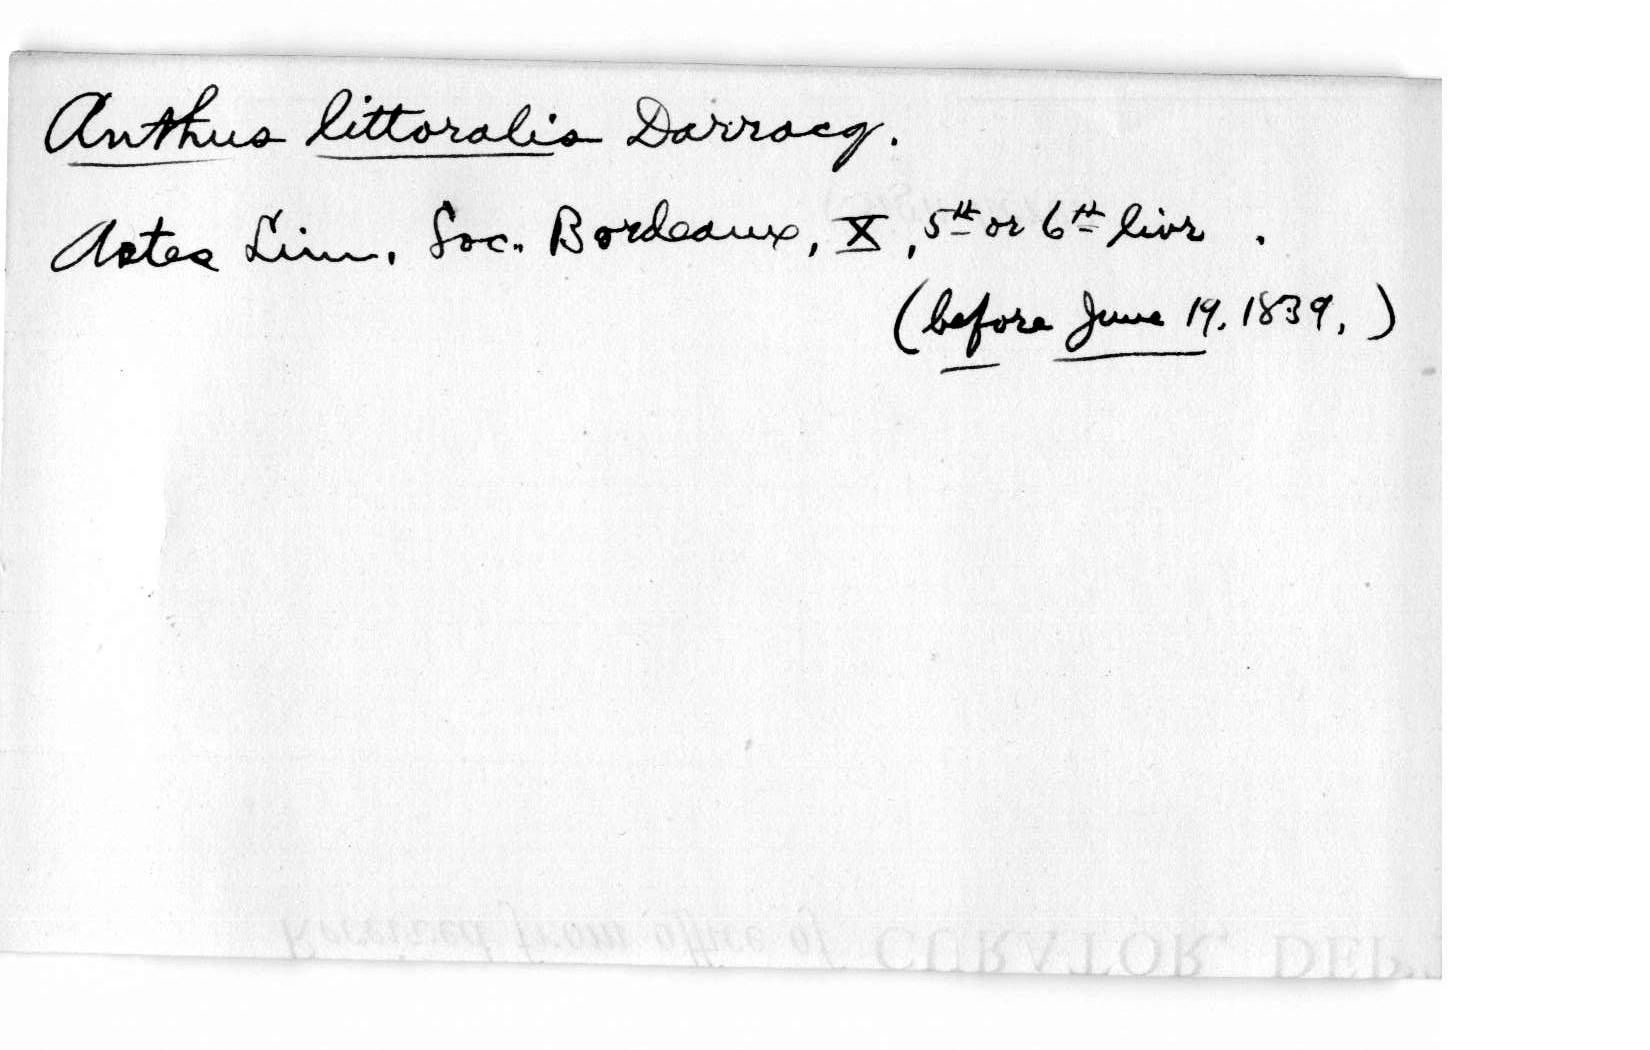 Anthus littoralis Darracq.
Actes Linn. Soc. Bordeaux, X, 5th or 6th livr.
(before June 19, 1839.)
Received from office of CURATOR, DEP